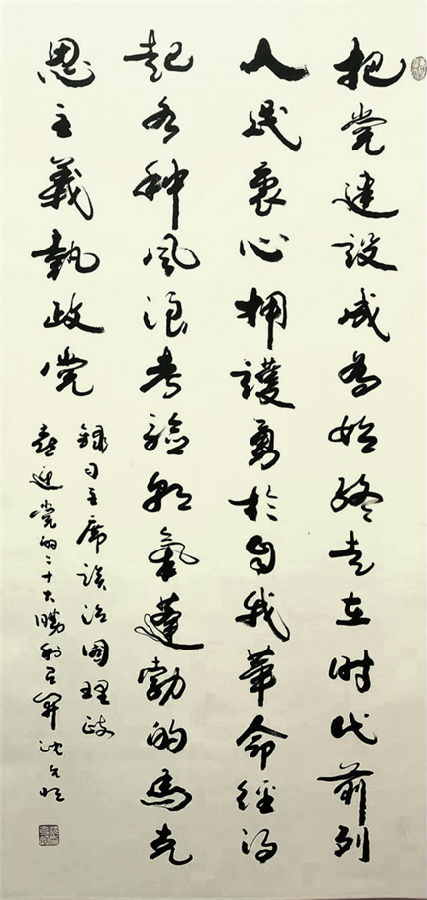 把党建设成为始终走在时代前列
人民衷心拥護勇於自我革命经得
起各种风浪考验朝氣蓬勃的馬克
思主義執政党
録习主席谈治國理政
喜迎党的二十大勝利召開